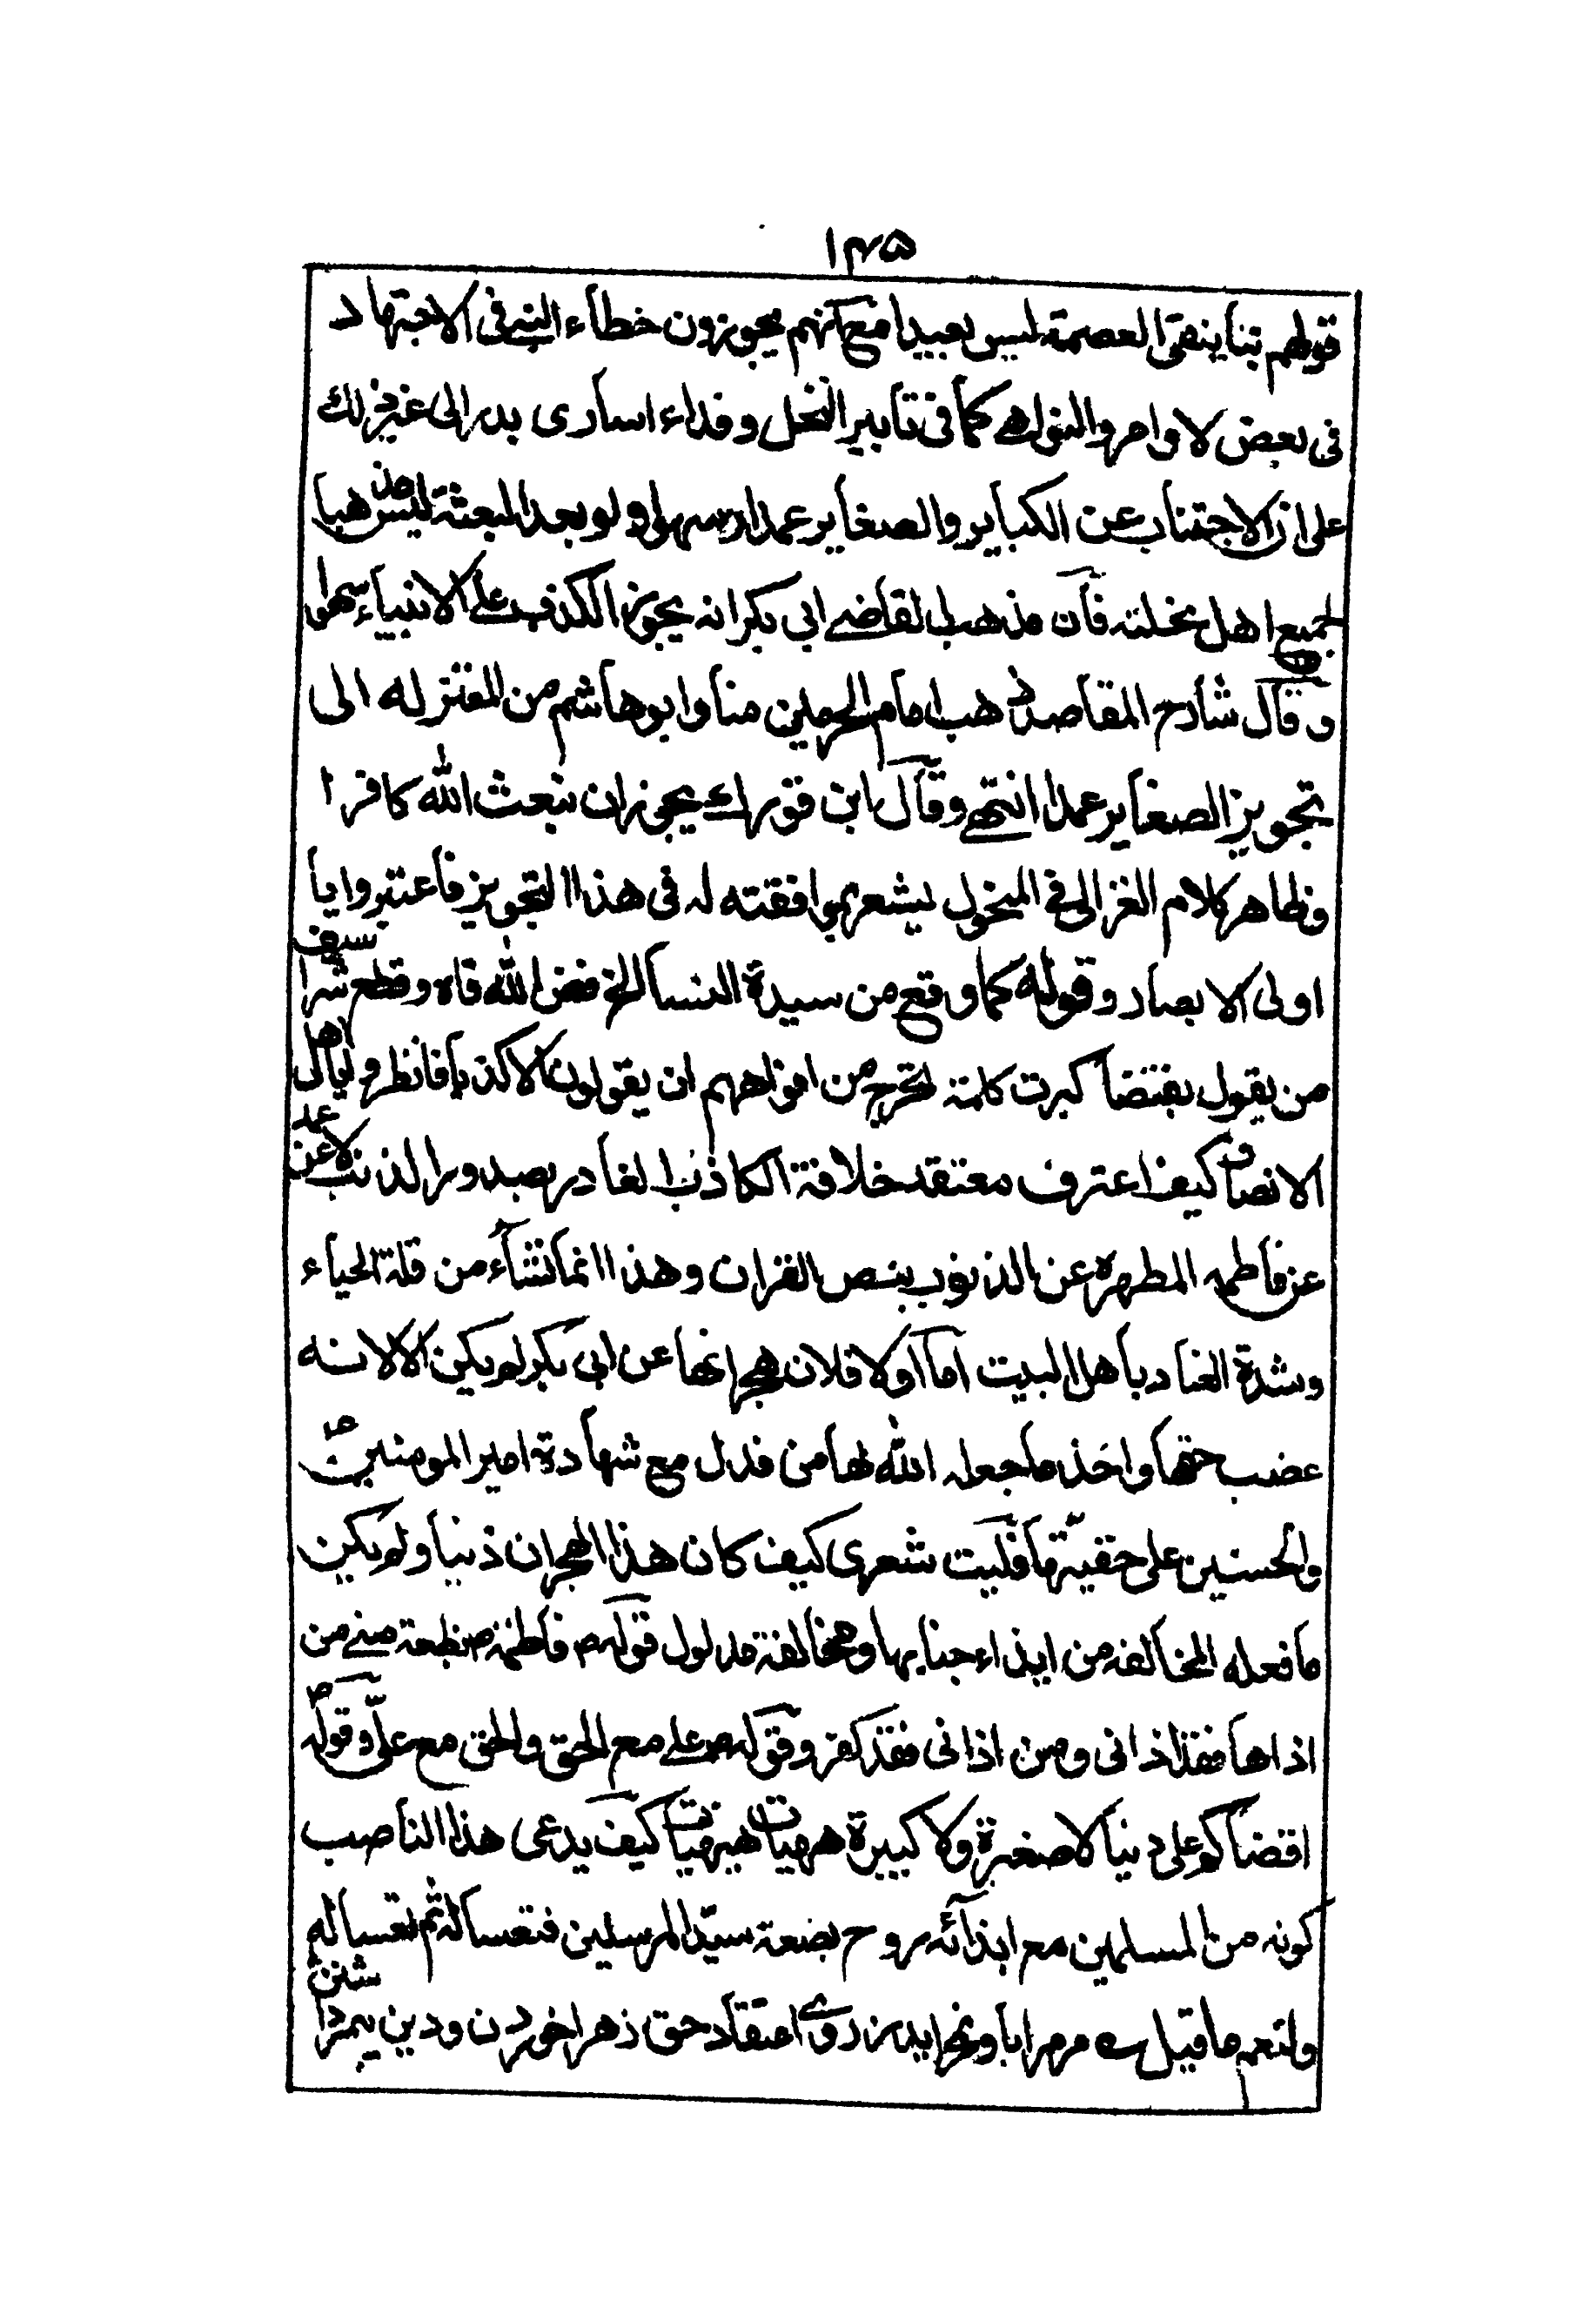 ١٣٥
قولهم بنا ينفى العصمة ليس ببعيد مع انهم يجوزون خطاء النبى فى الاجتهاد
فى بعض لاوامر والنواهى كما فى تأبير النخل وفداء اسارى بدر الى غير ذلك
على ان الاجتناب عن الكباير والصغاير عمدا وسهوا ولو بعد البعثة ليس مذهبا
لجميع اهل نحلته فان مذهب القاضى ابى بكر انه يجوز الكذب على الانبياء سهوا
وقال شارح المقاصد ذهب امام الحرمين منا وابو هاشم من المعتزله الى
تجويز الصغاير عمدا انتهى وقال ابن فورك يجوز ان يبعث الله كافرا
وظاهر كلام الغزالى فى المنخول يشعر بموافقته له فى هذا التجويز فاعتبروا يا
اولى الابصار وقوله كما وقع من سيدة النسا الخ فض الله فاه وقطع بسيف
من يقول بمقتضا كبرت كلمة تخرج من افواههم ان يقولون الا كذبا فانظروا يا اهل
الانصاف كيف اعترف معتقد خلافة الكاذب الغادر بصدور الذنب لا عن عمد
عن فاطمه المطهرة عن الذنوب بنص القران وهذا انما نشاء من قلة الحياء
وشدة العناد باهل البيت اما اولا فلان هجرانها عن ابى بكر لم يكن الا لانه
غضب حقها واخذ ما جعله الله لها من فدك مع شهادة امير المومنين
والحسنين على حقيتها فليت شعرى كيف كان هذا الهجران ذنبا ولم يكن
ما فعله المخالف من ايذاء جنابها ومخالفة مدلول قوله ص فاطمة بضعة منى من
اذاها فقد اذانى ومن اذانى فقد كفر وقوله ص على مع الحق والحق مع على وقوله ص
اقضاكم على ذنبا لا صغيرة ولا كبيرة هيهات هيهات كيف يدعى هذا الناصب
كونه من المسلمين مع ايذائه روح بضعة سيد المرسلين فتعسا له ثم تعسا له
ولنعم ما قيل مر مرا باور نمى ايد ز روى اعتقاد حق زهرا خوردن و دين پيمبر داشتن